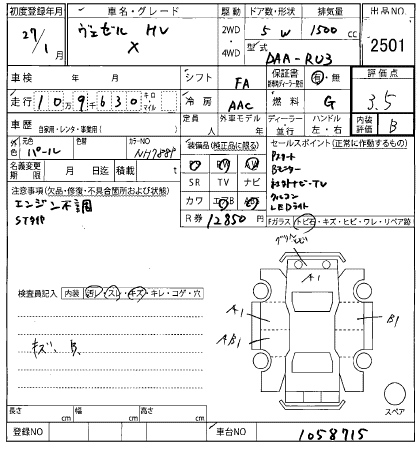 初度登録年月 車名・グレード 駆動 ドア数・形状 排気量 出品NO
27/1月 ヴェゼル HV X 2WD・4WD 5 W 1500cc 2501
型式 DAA-RU3
車検 年 月 シフト FA 保証書 新車時ディーラー発行 有・無 評価点
走行 109630 キロ・マイル 冷房 AAC 燃料 G 3.5
車歴 自家用・レンタ・事業用( ) 定員 人 外車モデル 年 ディーラー・並行 ハンドル 左・右 内装評価 B
元色 パール 色替 カラーNO NH788P
名義変更期限 月 日迄 積載 t
装備品(純正品に限る)
SR TV ナビ
カワ エアB
R券 12850円
セールスポイント(正常に作動するもの)
Pスタート
Bモニター
社外ナビ・TV
クルコン
LEDライト
注意事項(欠品・修復・不具合箇所および状態)
エンジン不調
Fガラス(トビ石・キズ・ヒビ・ワレ・リペア跡)
A1
検査員記入 内装(汚レ・スレ・キズ・キレ・コゲ・穴
A1
B1
AB1
キズ B
スペア
長さ cm 幅 cm 高さ cm
登録NO 車台NO 1058715